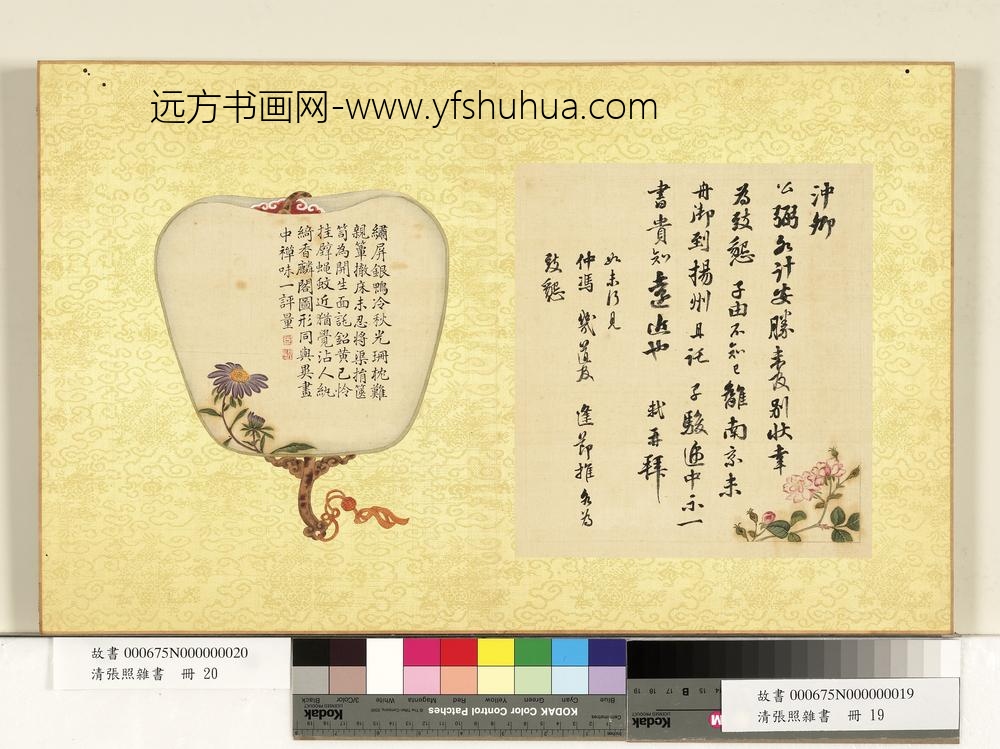 远方书画网-www.yfshuhua.com
沖卿
公弼各計安勝未及別狀幸
為致懇 子由不知已離南京未
舟御到揚州且託 子駿遞中示一
書貴知遠近也 軾再拜
如未行見
仲馮 幾道及 逢節推各為
致懇
繡屏銀鴨冷秋光珊枕難
親簟撤床未忍將渠捐篋
笥為開生面託鉛黄已怜
挂壁蠅蚊近猶覺沾人紈
綺香麟閣圖形同與異畫
中禪味一評量
故書 000675N000000020
清張照雜書 冊 20
故書 000675N000000019
清張照雜書 冊 19
KODAK Color Control Patches
Kodak
LICENSED PRODUCT
Black
3/Color
White
Magenta
Red
Yellow
Green
Cyan
Blue
Kodak
LICENSED PRODUCT
B
M